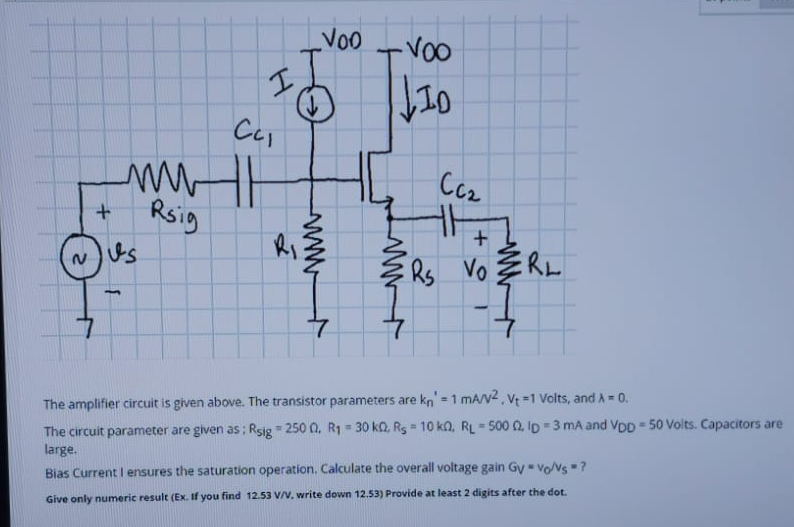 VDD
VDD
I
ID
Cc1
Rsig
Cc2
+
vs
R1
Rs
+
Vo
-
RL
-
The amplifier circuit is given above. The transistor parameters are kn' = 1 mA/V2 , Vt =1 Volts, and λ = 0.
The circuit parameter are given as ; Rsig = 250 Ω, R1 = 30 kΩ, Rs = 10 kΩ, RL = 500 Ω, ID = 3 mA and VDD = 50 Volts. Capacitors are
large.
Bias Current I ensures the saturation operation. Calculate the overall voltage gain Gv = vo/vs = ?
Give only numeric result (Ex. If you find 12.53 V/V, write down 12.53) Provide at least 2 digits after the dot.